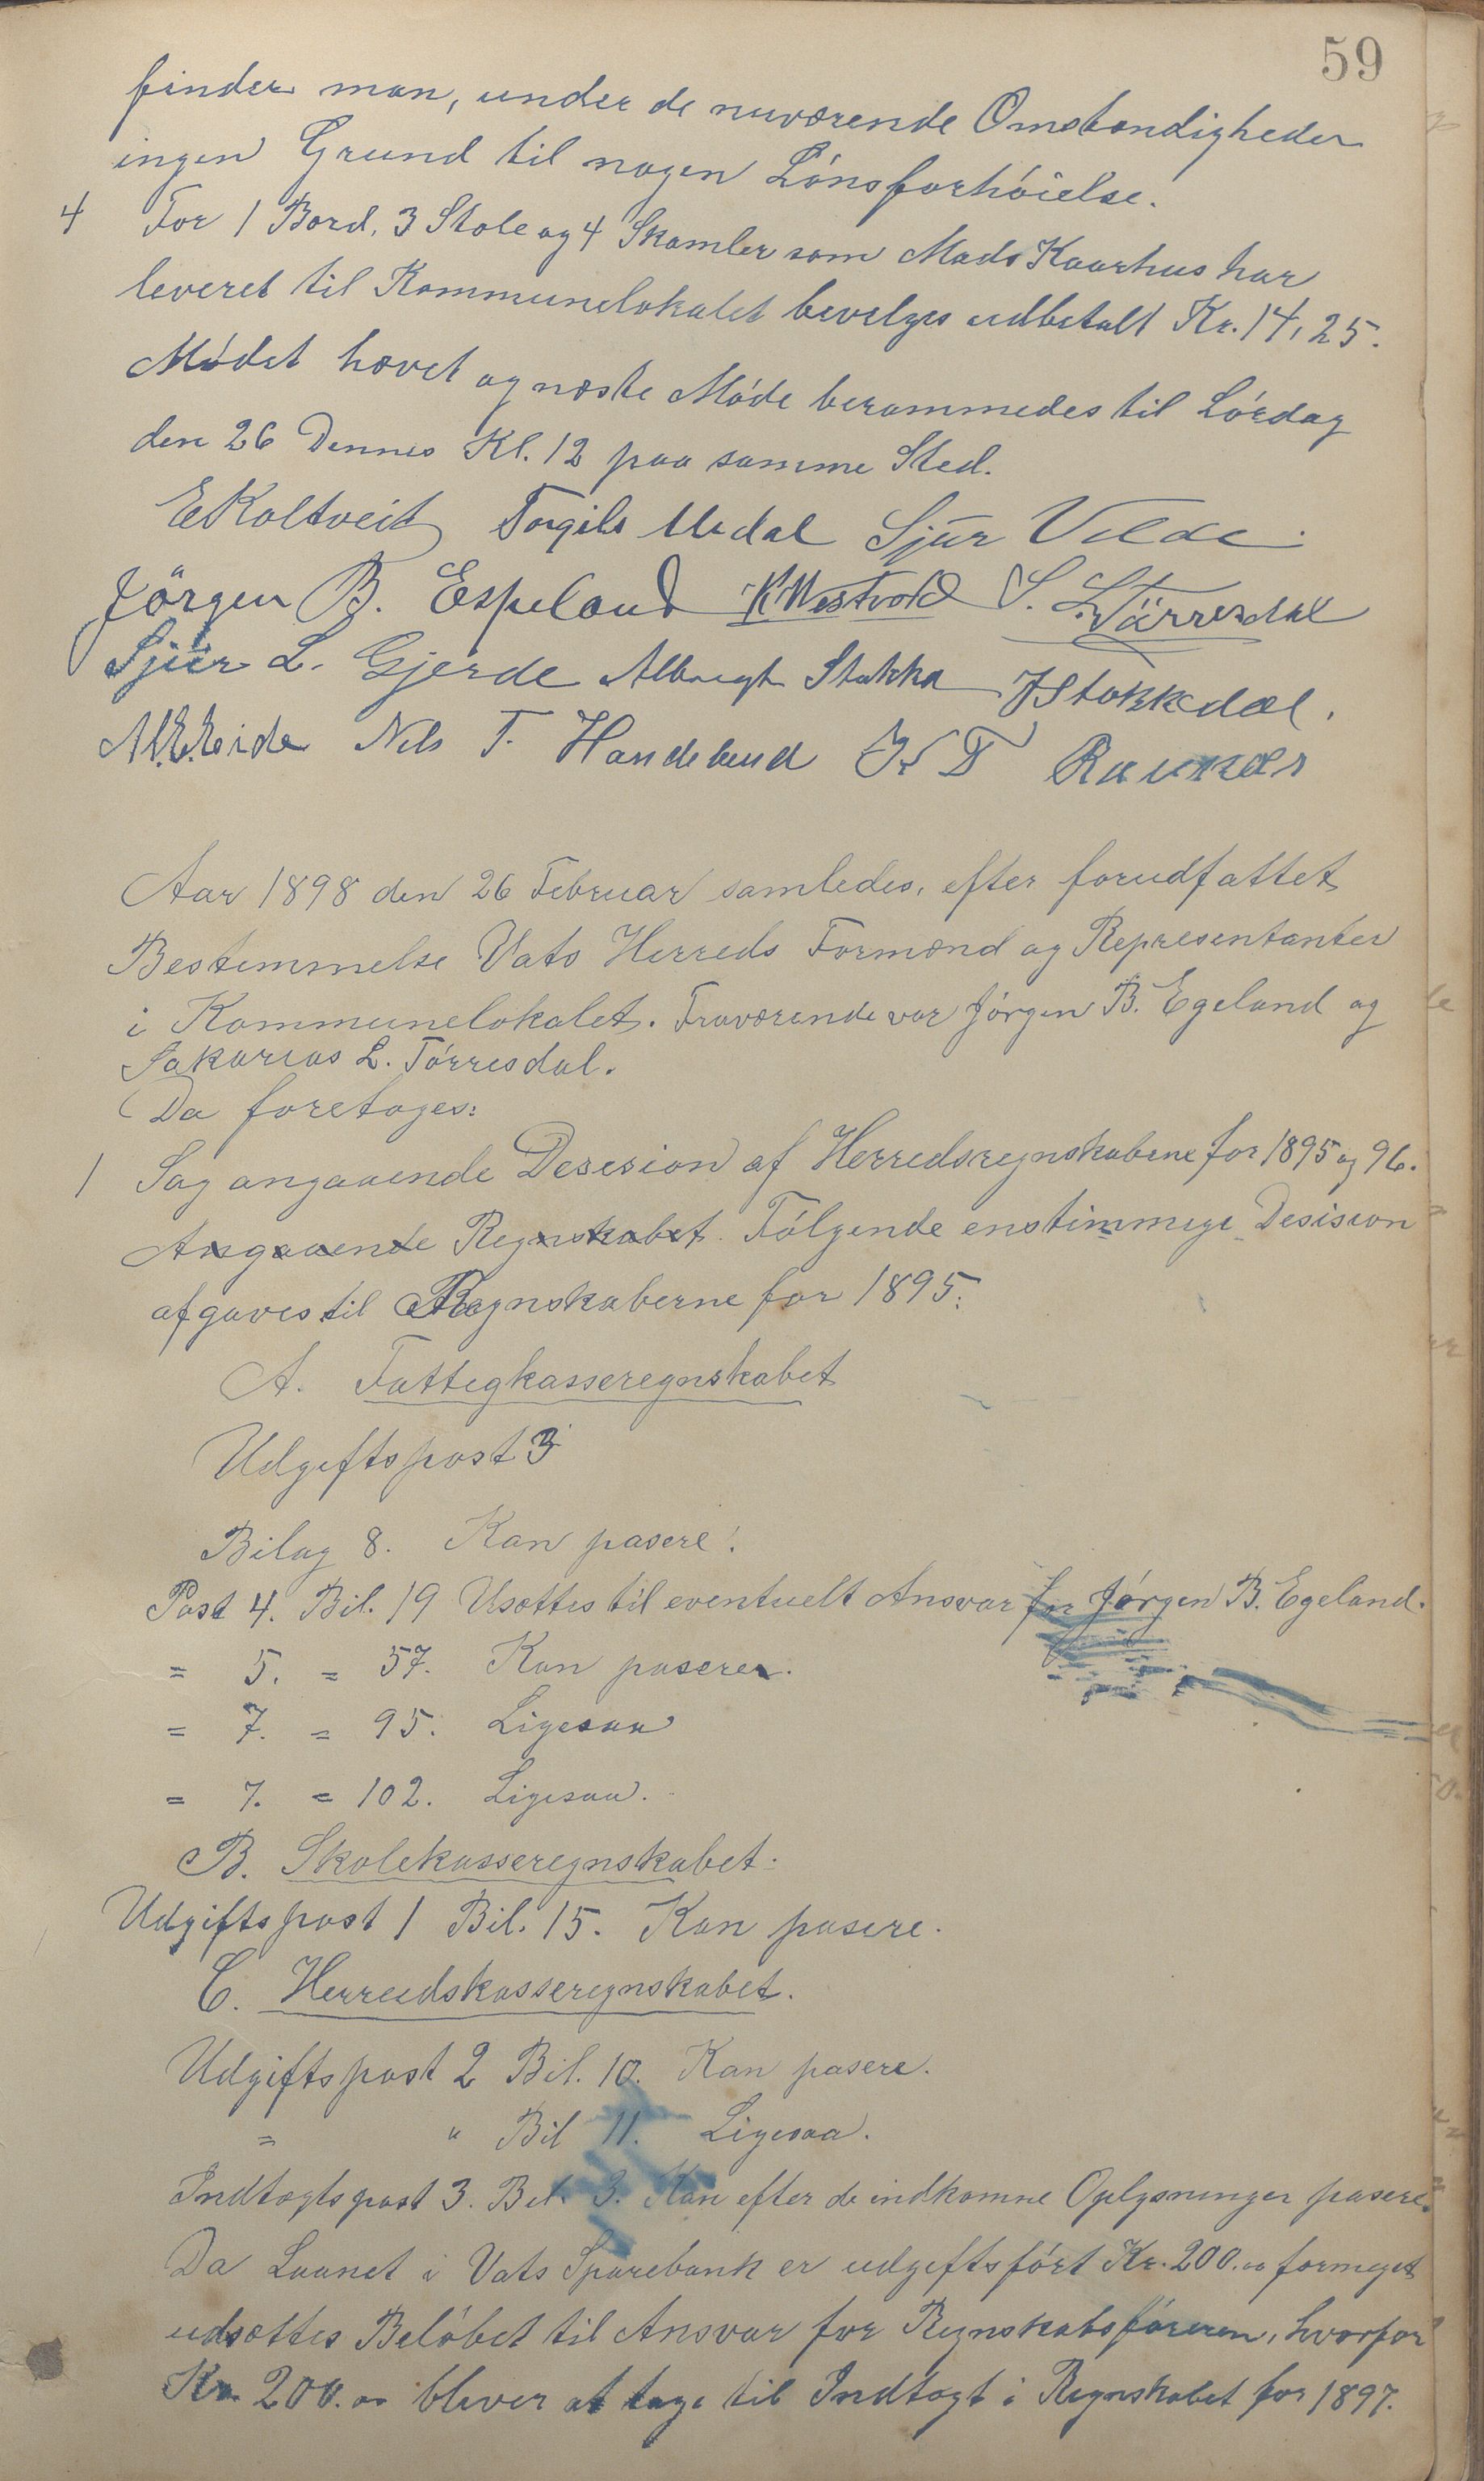 59
finder man, under de nuværende Omstændigheder
ingen Grund til nogen Lónsforhóielse.
4 For 1 Bord, 3 Stole og 4 Skamler som Mads Kaarhus har
leveret til Kommunelokalet bevilges udbetalt Kr. 14,25.
Módet hævet og næste Móde berammedes til Lórdag
den 26 Dennes Kl. 12 paa samme Sted.
EKoltveit Torgils Medal Sjur Velde.
Jörgen B. Espeland KWestvold S. L. Tärresdal
Sjur L. Gjerde Albregt Stakka JStokkedal.
M.E. Eide Nils T. Handeland T Raunkær
Aar 1898 den 26 Februar samledes, efter forudfattet
Bestemmelse Vats Herreds Formænd og Representanter
i Kommunelokalet. Fraværende var Jórgen B. Egeland og
Sakarias L. Tórresdal.
Da foretoges:
1 Sag angaaende Desesion af Herredsregnskabene for 1895 og 96.
Angaaende Regnskabet. Fólgende enstimmige Desision
afgaves til Regnskaberne for 1895:
A. Fattigkasseregnskabet
Udgiftspost 3
Bilag 8. Kan pasere.
Post 4. Bil. 19 Usættes til eventuelt Ansvar for Jórgen B. Egeland.
= 5. = 57. Kan pasere.
= 7. = 95. Ligesaa
= 7. = 102. Ligesaa.
B. Skolekasseregnskabet.
Udgiftspost 1 Bil. 15. Kan pasere.
C. Herredskasseregnskabet.
Udgiftspost 2 Bil. 10. Kan pasere.
= " Bil 11. Ligesaa.
Indtægtspost 3. Bil. 3. Kan efter de indkomne Oplysninger pasere.
Da Laanet i Vats Sparebank er udgiftsfórt Kr. 200.00 formeget
udsættes Belóbet til Ansvar for Regnskabsfóreren, hvorfor
Kr. 200.00 bliver at tage til Indtægt i Regnskabet for 1897.